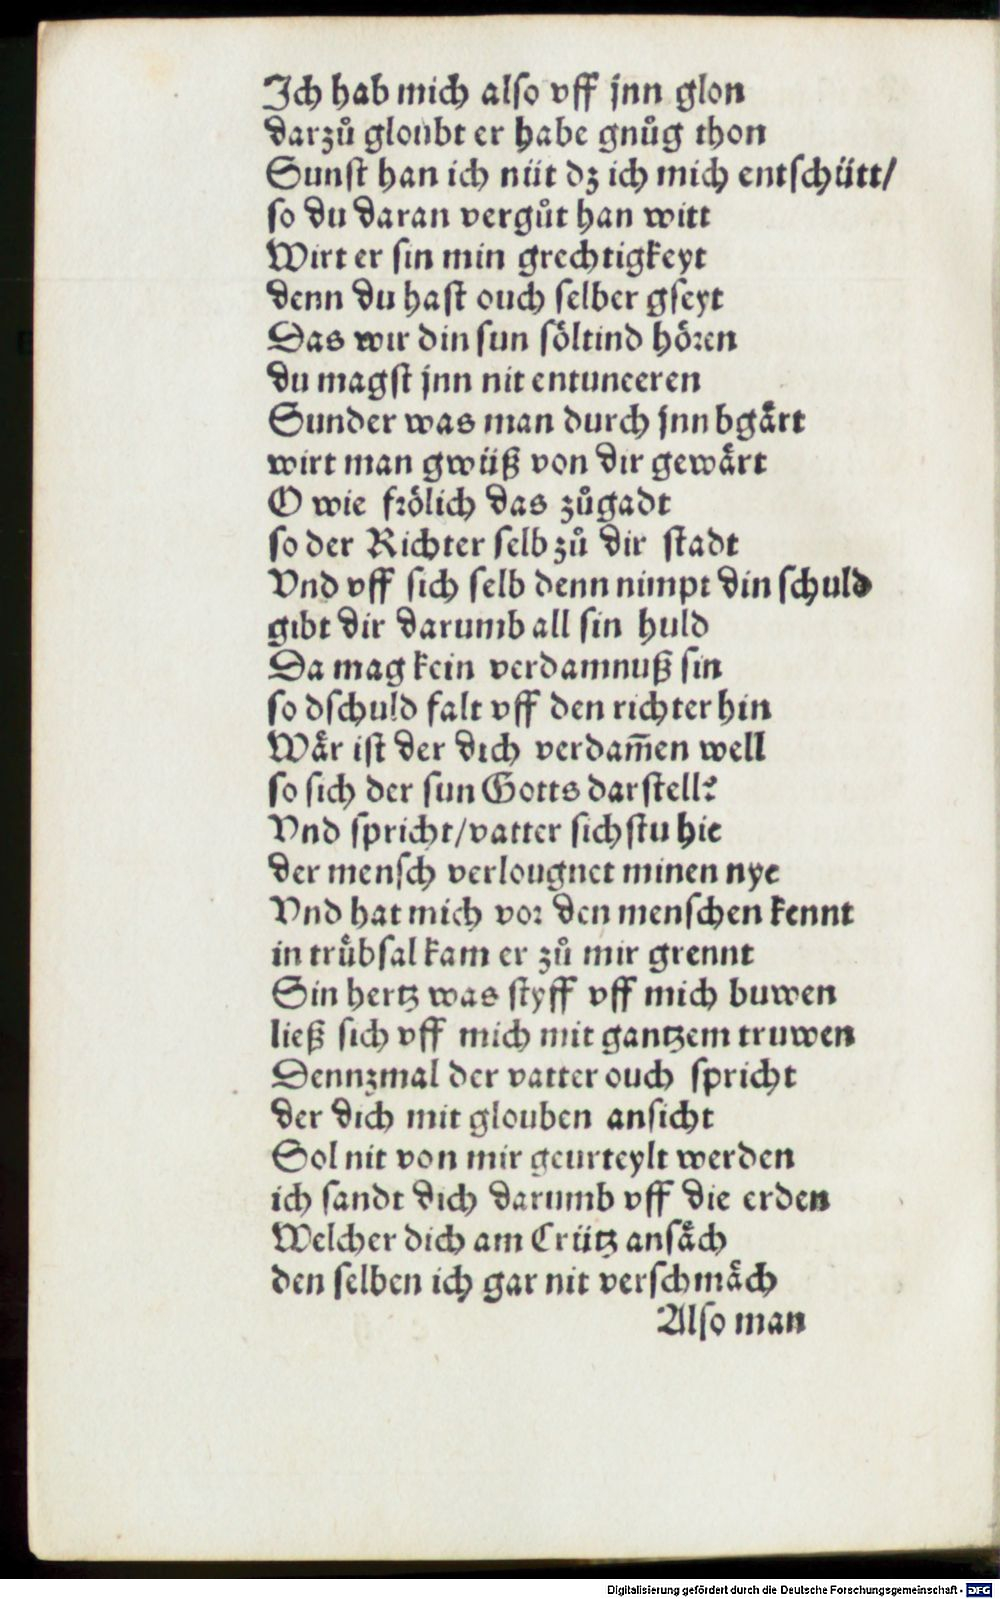 Ich hab mich also vff jnn glon
darzů gloubt er habe gnůg thon
Sunst han ich nüt dz ich mich entschütt/
so du daran vergůt han witt
Wirt er sin min grechtigkeyt
denn du hast ouch selber gseyt
Das wir din sun söltind hören
du magst jnn nit entunceren
Sunder was man durch jnn bgärt
wirt man gwüß von dir gewärt
O wie frölich das zůgadt
so der Richter selb zů dir stadt
Vnd vff sich selb denn nimpt din schuld
gibt dir darumb all sin huld
Da mag kein verdamnuß sin
so dschuld falt vff den richter hin
Wär ist der dich verdam̄en well
so sich der sun Gotts darstell?
Vnd spricht/vatter sichstu hie
der mensch verlougnet minen nye
Vnd hat mich vor den menschen kennt
in trůbsal kam er zů mir grennt
Sin hertz was styff vff mich buwen
ließ sich vff mich mit gantzem truwen
Dennzmal der vatter ouch spricht
der dich mit glouben ansicht
Sol nit von mir geurteylt werden
ich sandt dich darumb vff die erden
Welcher dich am Crütz ansäch
den selben ich gar nit verschmäch
Also man
Digitalisierung gefördert durch die Deutsche Forschungsgemeinschaft - DFG